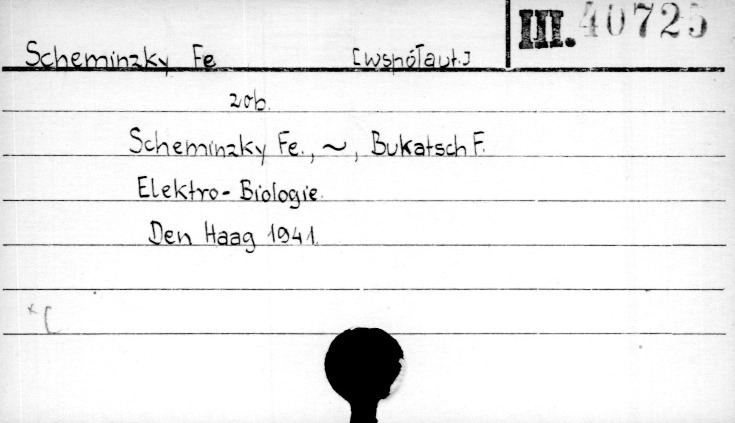 Scheminzky Fe [współaut.] III. 40725
zob.
Scheminzky Fe., ~, Bukatsch F.
Elektro-Biologie.
Den Haag 1941.